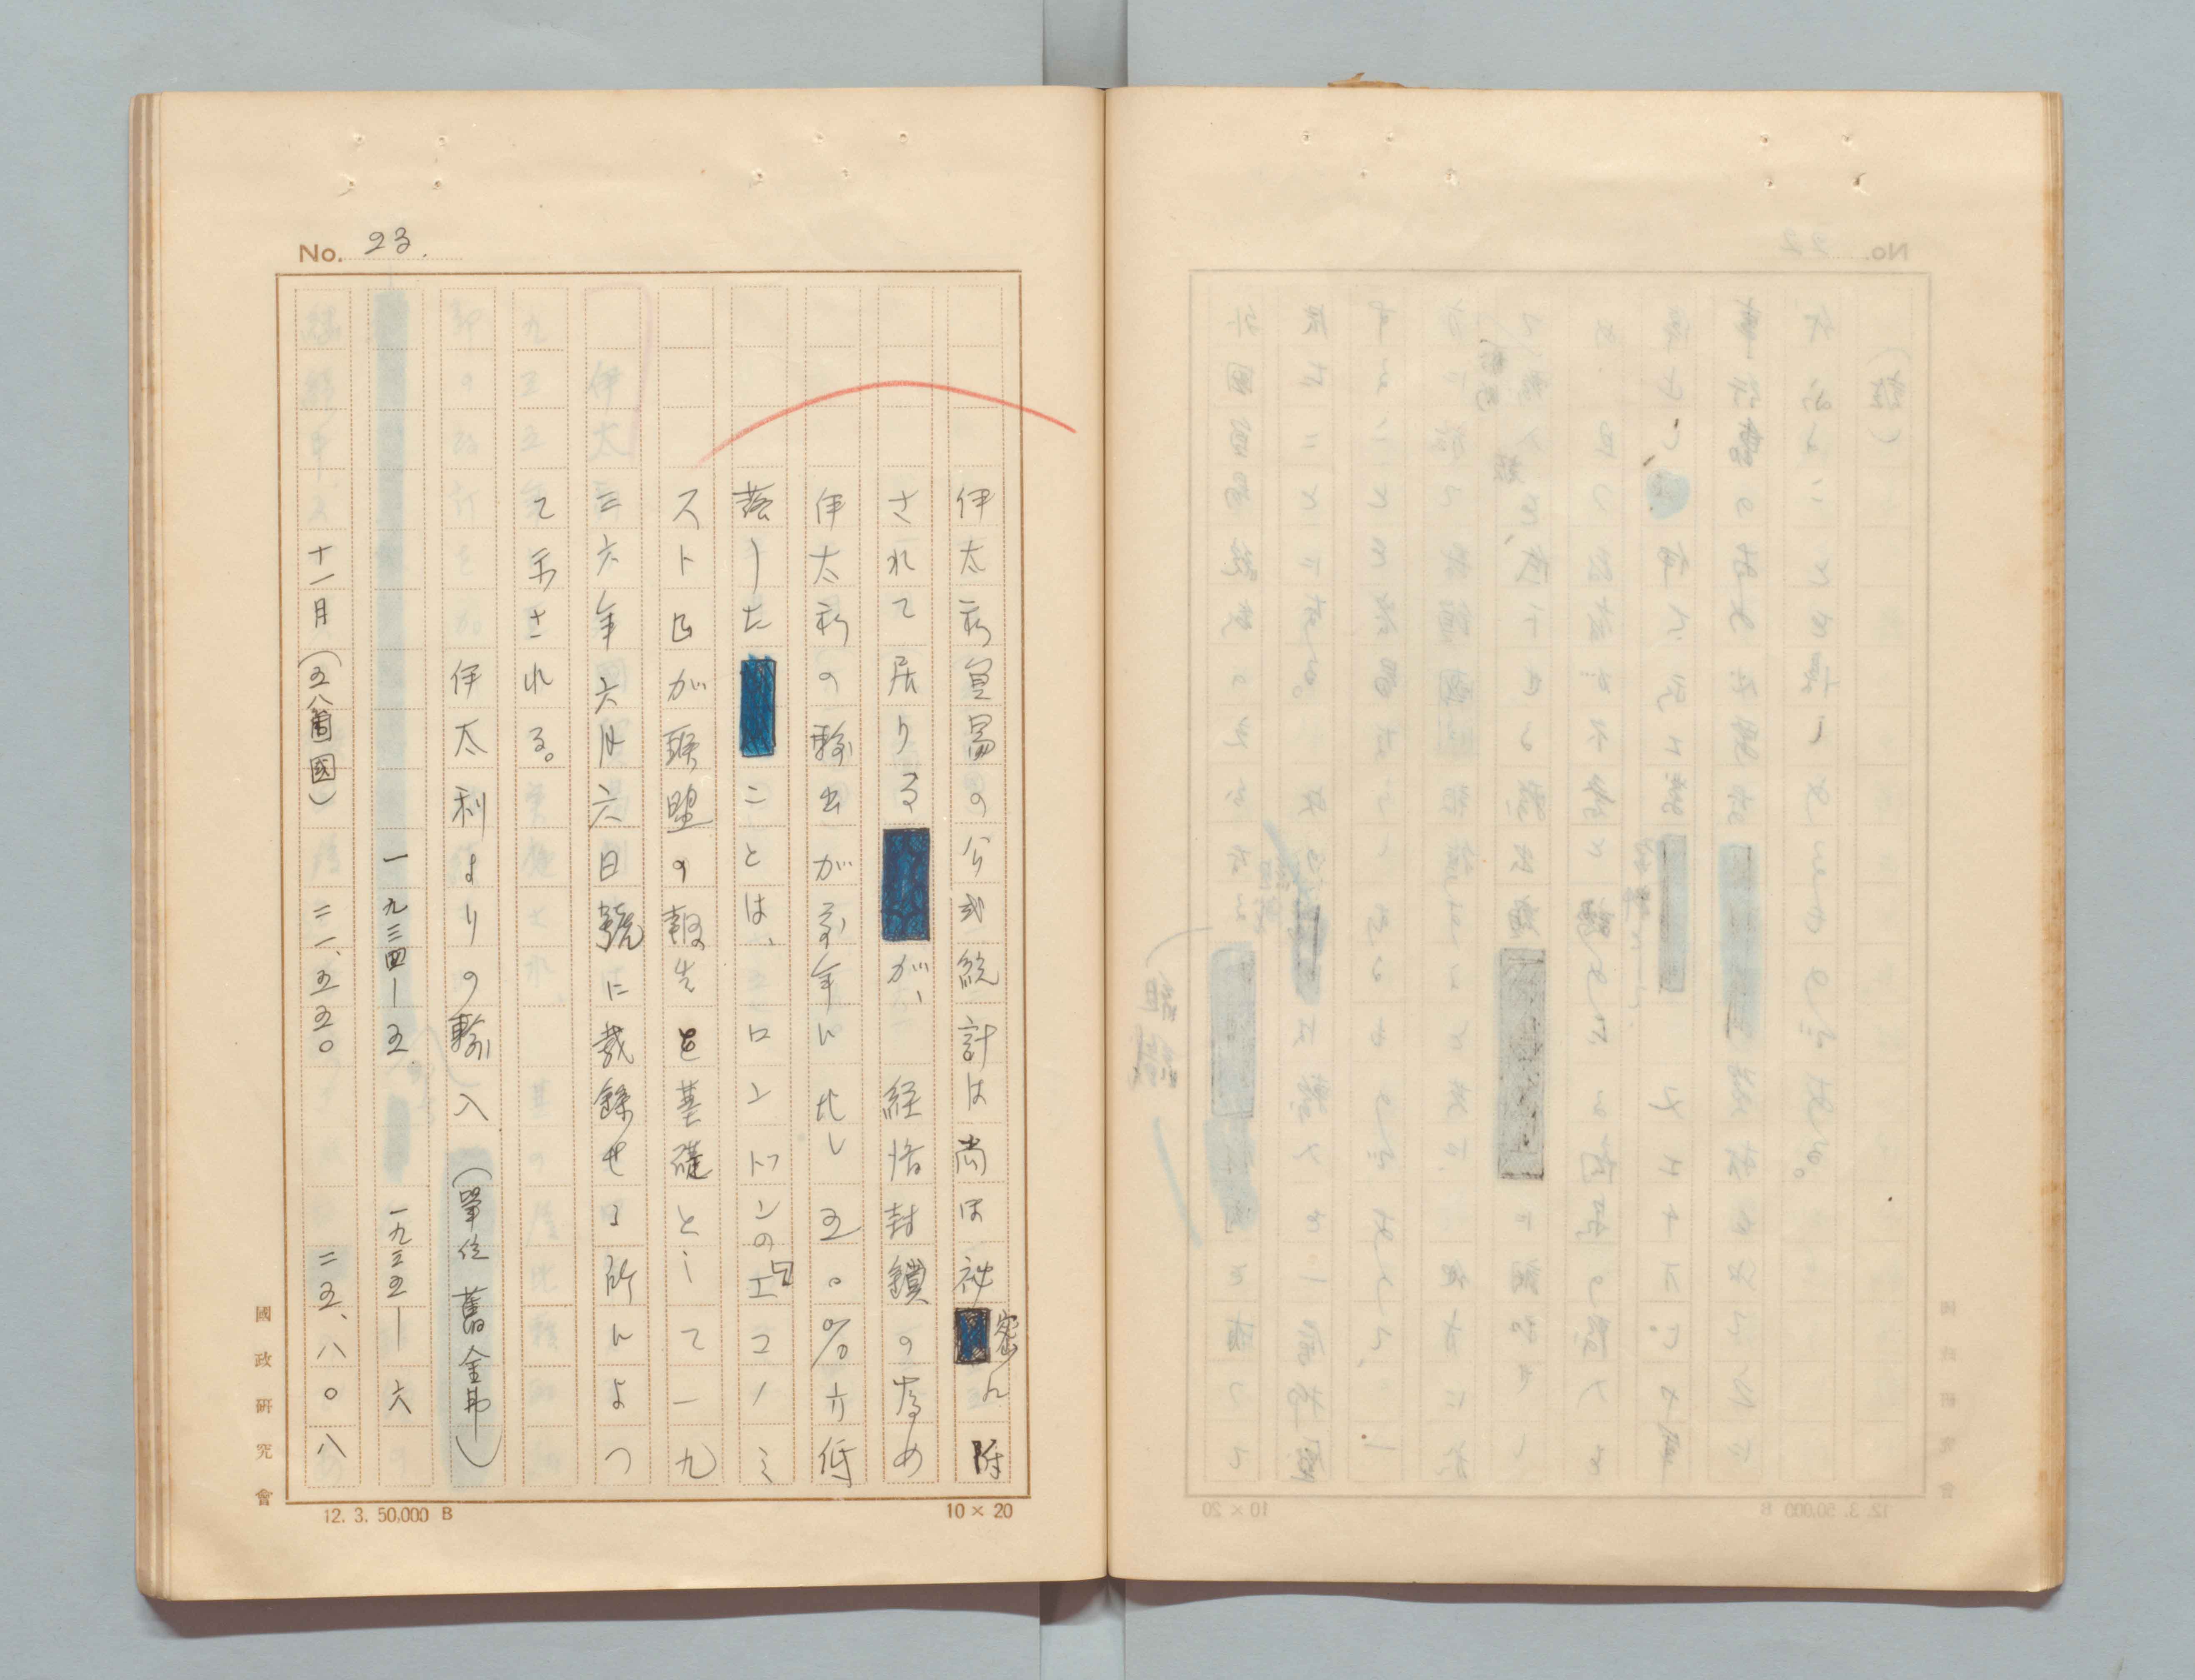 No. 23.
伊太利貿易の公式統計は尚ほ祕密に附
されて居りるが、経済封鎖の為め
伊太利の輸出が前年に比し五〇%方低
落したことは、ロンドンのエコノミ
ストロが聯盟の報告を基礎として一九
三六年六月六日號に裁錄せる所によつ
て示される。
伊太利よりの輸入(單位 舊金弗)
一九三四ー五 一九三五ー六
十一月(五八箇國) 二一、五五〇 二五、八〇八
國政研究會
12. 3. 50,000 B
10 × 20